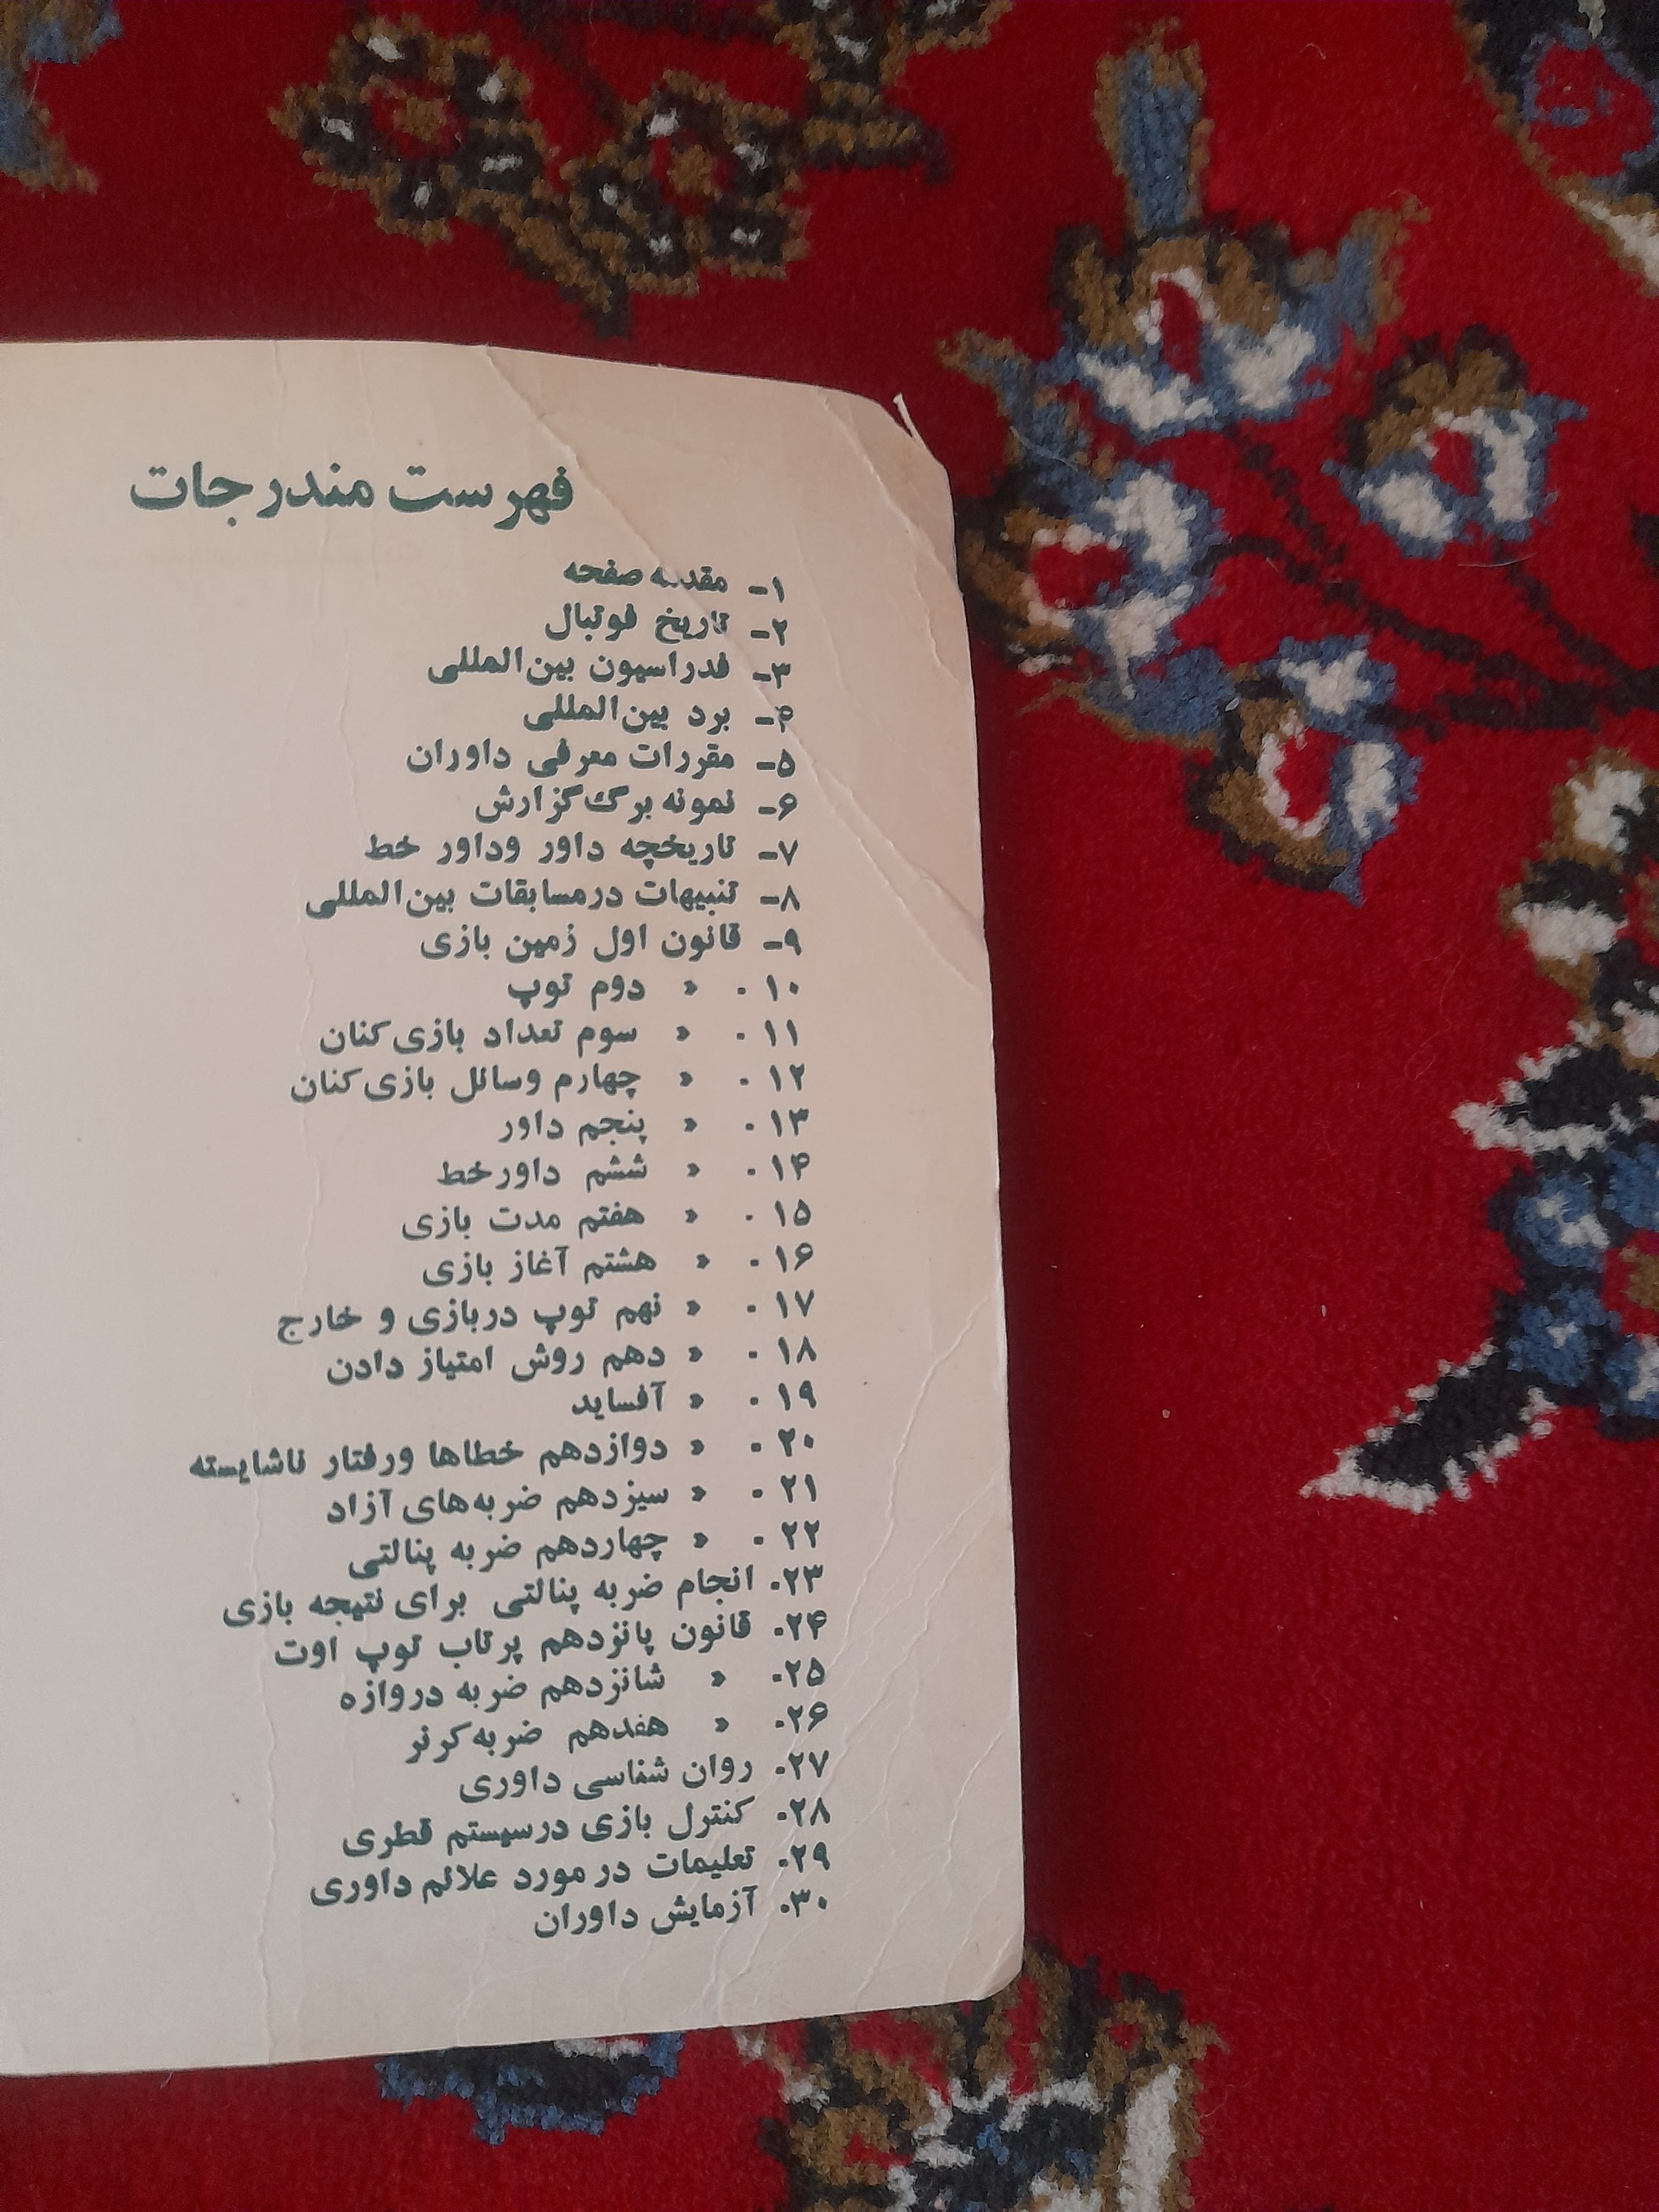 فهرست مندرجات
۱- مقدمه صفحه
۲- تاریخ فوتبال
۳- فدراسیون بین‌المللی
۴- برد بین‌المللی
۵- مقررات معرفی داوران
۶- نمونه برگ گزارش
۷- تاریخچه داور وداور خط
۸- تنبیهات درمسابقات بین‌المللی
۹- قانون اول زمین بازی
۱۰ . » دوم توپ
۱۱ . » سوم تعداد بازی کنان
۱۲ . » چهارم وسائل بازی کنان
۱۳ . » پنجم داور
۱۴ . » ششم داورخط
۱۵ . » هفتم مدت بازی
۱۶ . » هشتم آغاز بازی
۱۷ . » نهم توپ دربازی و خارج
۱۸ . » دهم روش امتیاز دادن
۱۹ . » آفساید
۲۰ . » دوازدهم خطاها ورفتار ناشایسته
۲۱ . » سیزدهم ضربه‌های آزاد
۲۲ . » چهاردهم ضربه پنالتی
۲۳. انجام ضربه پنالتی برای نتیجه بازی
۲۴. قانون پانزدهم پرتاب توپ اوت
۲۵. » شانزدهم ضربه دروازه
۲۶. » هفدهم ضربه کرنر
۲۷. روان شناسی داوری
۲۸. کنترل بازی درسیستم قطری
۲۹. تعلیمات در مورد علائم داوری
۳۰. آزمایش داوران